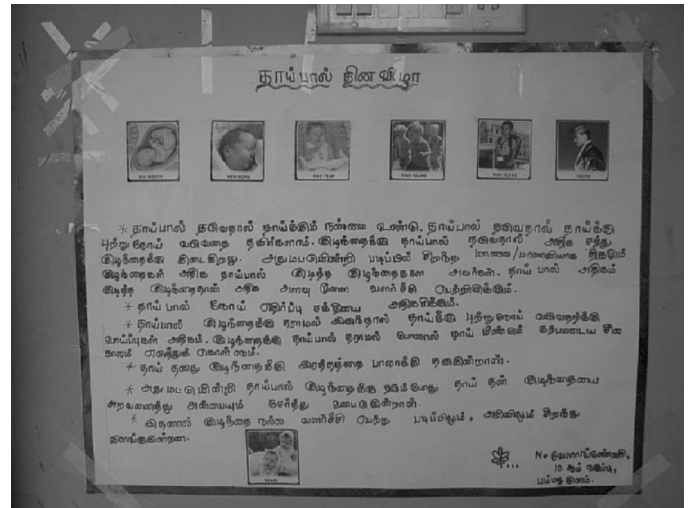 தாய்பால் தினவிழா
SIX MONTH NEW BORN ONE YEAR FIVE YEARS FIVE YEARS YOUTH
* தாய்பால் தருவதால் தாய்க்கும் நன்மை உண்டு. தாய்பால் தருவதால் தாய்க்கு
புற்றுநோய் வருவதை தவிர்களாம். குழந்தைக்கு தாய்பால் தருவதால் அதிக சத்து
குழந்தைக்கு கிடைகிறது. அதுமட்டுமின்றி படிப்பில் சிறந்த மாணவ/மாணவியாக திகழும்
குழந்தைகள் அதிக தாய்பால் குடித்த குழந்தைகளே அவர்கள். தாய் பால் அதிகம்
குடித்த குழந்தைதான் அதிக அளவு மூளை வளர்ச்சி பெற்றிருக்கும்.
* தாய் பால் நோய் எதிர்ப்பு சக்தியை அதிகரிக்கும்.
* தாய்பால் குழந்தைக்கு தராமல் இருந்தால் தாய்க்கு புற்றுநோய் வருவதற்க்கு
வாய்ப்புகள் அதிகம். குழந்தைக்கு தாய்பால் தராமல் போனால் தாய் மீண்டும் கற்பமடைய சில
காலம் எடுத்துக் கொள்ளும்.
* தாய் தனது குழந்தைக்கு இரத்தத்தை பாலாக்கி தருகின்றாள்.
* அதுமட்டுமின்றி தாய்பால் குழந்தைக்கு தரும்போது தாய் தன் குழந்தையை
அரவணைத்து அன்பையும் சேர்த்து ஊட்டுகின்றாள்.
* இதனால் குழந்தை நல்ல வளர்ச்சி பெற்று படிப்பிலும், அறிவிலும் சிறந்து
விளங்குகின்றன.
N. வேளாங்கண்ணி,
10 ஆம் வகுப்பு,